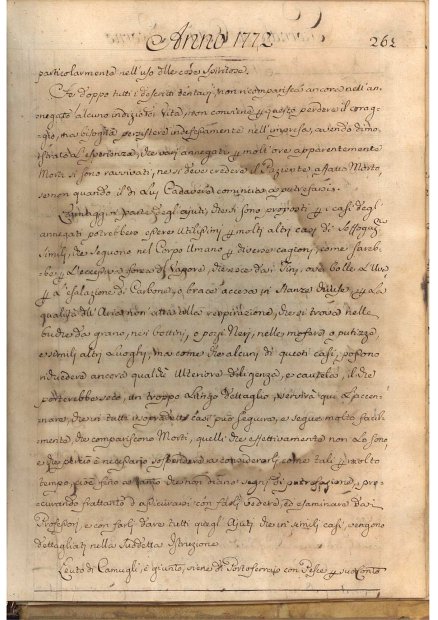 Anno 1772
261
particolarmente nell'uso delle cose Spiritose.
Se d'oppo tutti i descritti tentavi, non comparisca ancora nell'an-
negato alcuno indizio di vita, non conviene per questo perdere il corag-
gio, ma bisogna persistere indefessamente nell'impresa, avendo dimo-
strato l'Esperienza, che varj annegati per molt'ore apparentemente
Morti si sono ravvivati, ne si deve credere il Paziente affatto Morto,
se non quando il di Lui Cadavere comincia a putrefarsi.
parte degl'ajuti, che si sono proposti per i casi degl'
annegati potrebbero essere Utilissimi per molti altri casi di Soffogaz.ne
Simili, che seguono nel Corpo Umano per diverse cagioni, come sareb-
be per l'eccessiva forza di Vapore, che esce da i Tini, ove bolle l'Uva
per l'esalazione di Carbone, o brace accesa in Stanze chiuse, per la
qualità dell'Aria non atta alla respirazione, che si trova nelle
buche da grano, nei bottini, e pozzi Neri, nelle mofete o putizze
e simili altri Luoghi, ma come che alcuni di questi casi, possono
richiedere ancora qualche ulteriore diligenza, e cautela, il che
porterebbe seco, un troppo Lungo dettaglio, servirà qui l'accen-
nare, che in tutti i sopradetti casi può seguire, e segue molto facil-
mente, che compariscono Morti, quelli che effettivamente non lo sono,
e che perciò è necessario sospendere a considerarli come tali per molto
tempo, cioè fino a tanto che non diano segni di putrefazione, pro-
curando frattanto d'assicurarsi con farli vedere, ed esaminare da i
Professori, e con farli dare tutti quegl'Ajuti che in simili casi, vengono
dettagliati nella Suddetta Istruzione.
Leuto di Camugli, è giunto, viene di Portoferrajo con Pesce per suo Conto